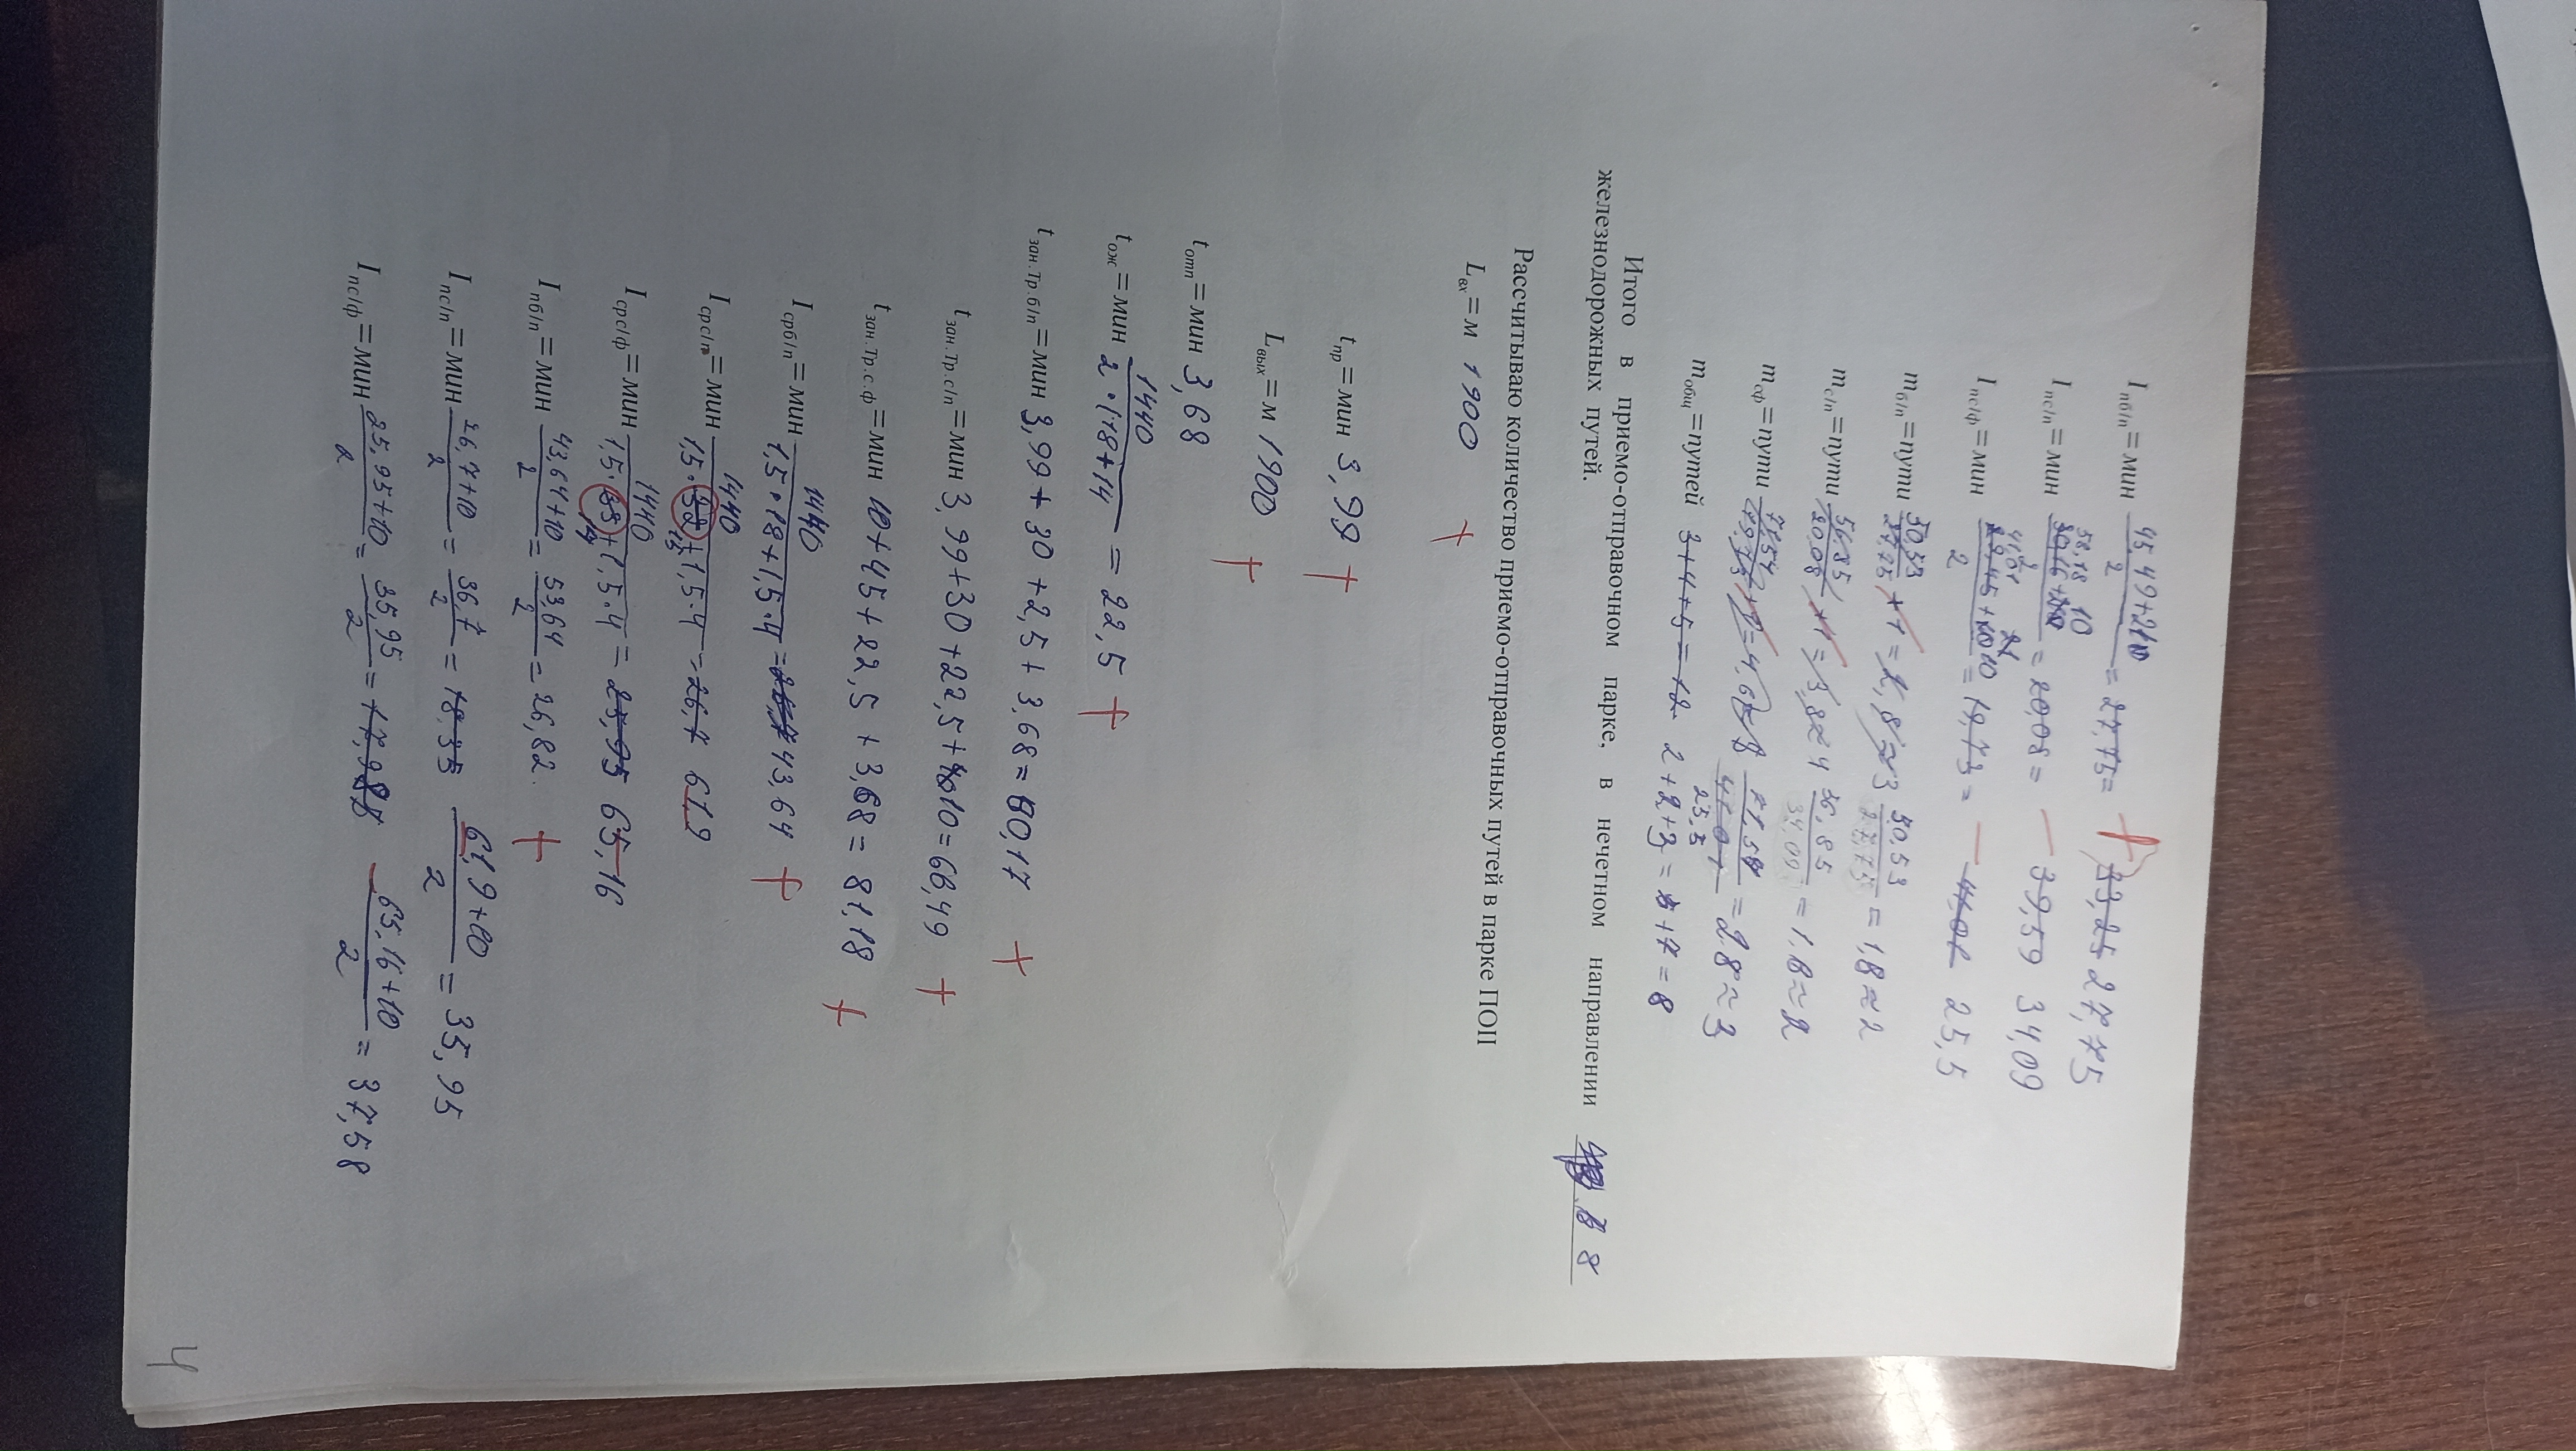 I пб/п = мин 45,49+10 / 2 = 27,75 = 33,25 27,75
I пс/п = мин 58,18 10 / 2 = 20,08 = 39,59 34,09
I пс/ф = мин 41,01 10 / 2 = 19,73 = 41,01 25,5
m б/п = пути 50,53 / 27,75 + 1 = 2,8 ≈ 3 50,53 / 27,75 = 1,8 ≈ 2
m с/п = пути 56,85 / 20,08 + 1 = 3,8 ≈ 4 56,85 / 34,09 = 1,8 ≈ 2
m сф = пути 71,54 / 19,73 + 1 = 4,6 71,54 / 25,5 = 2,8 ≈ 3
m общ = путей 3+4+5=12 2+2+3= +7=8
Итого в приемо-отправочном парке, в нечетном направлении 8
железнодорожных путей.
Рассчитываю количество приемо-отправочных путей в парке ПОП
L вх = м 1900 +
t пр = мин 3,99 +
L вых = м 1900 +
t отп = мин 3,68
t ож = мин 1440 / 2·(18+14 = 22,5 +
t зан.Тр.б/п = мин 3,99+30+2,5+3,68=40,17 +
t зан.Тр.с/п = мин 3,99+30+22,5+10=66,49 +
t зан.Тр.с.ф = мин 10+45+22,5+3,68=81,18 +
I срб/п = мин 1440 / 1,5·18+1,5·4 = 43,64 +
I срс/п = мин 1440 / 1,5· +1,5·4 = 26,7 61,9
I срс/ф = мин 1440 / 1,5· +1,5·4 = 25,95 65,16
I пб/п = мин 43,64+10 / 2 = 53,64 / 2 = 26,82. +
I пс/п = мин 26,7+10 / 2 = 36,7 / 2 = 18,35 61,9+10 / 2 = 35,95
I пс/ф = мин 25,95+10 / 2 = 35,95 / 2 = 65,16+10 / 2 = 37,58
4